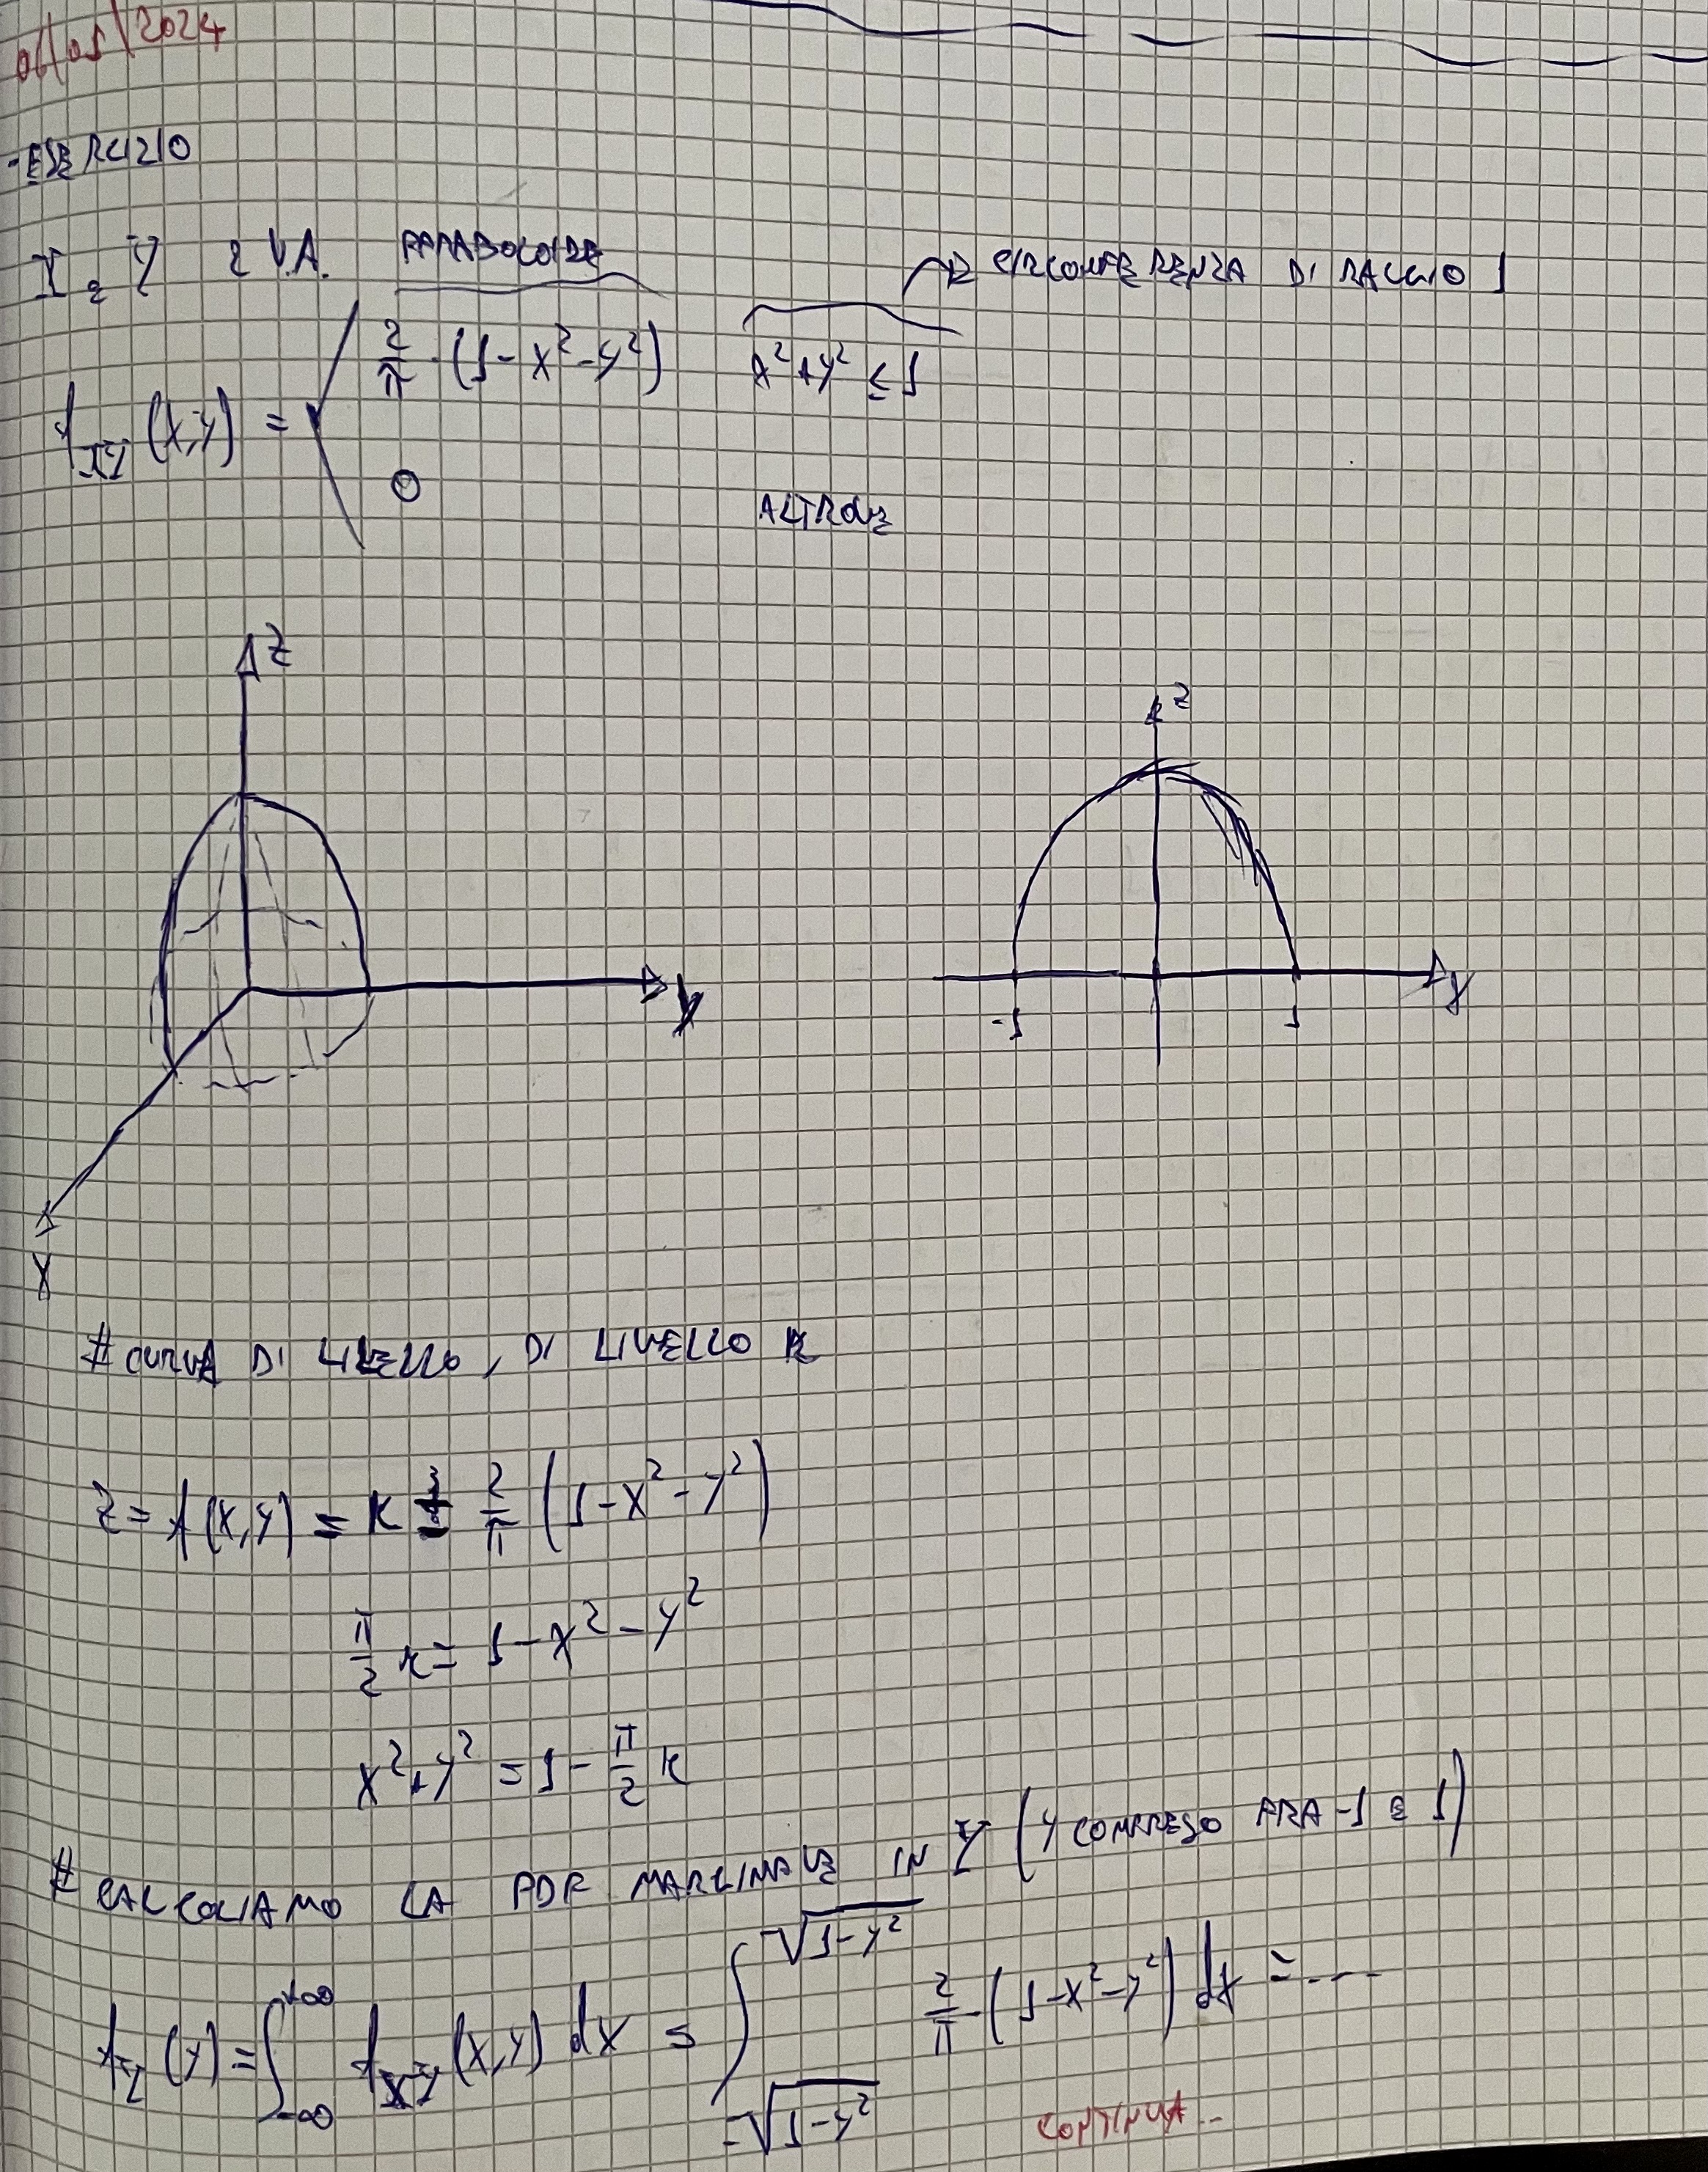 06/05/2024
- ESERCIZIO
X e Y 2 V.A. PARABOLOIDE → CIRCONFERENZA DI RAGGIO 1
f_XY (x,y) = { 2/π · (1 - x² - y²) x² + y² ≤ 1
0 ALTROVE
z
y
x
z
-1 1 y
# CURVA DI LIVELLO, DI LIVELLO K
z = f(x,y) = k = 2/π (1 - x² - y²)
π/2 k = 1 - x² - y²
x² + y² = 1 - π/2 k
# CALCOLIAMO LA PDF MARGINALE IN Y (y COMPRESO FRA -1 E 1)
f_Y (y) = ∫_{-∞}^{+∞} f_XY (x,y) dx = ∫_{-√(1-y²)}^{√(1-y²)} 2/π · (1 - x² - y²) dx = ....
CONTINUA...